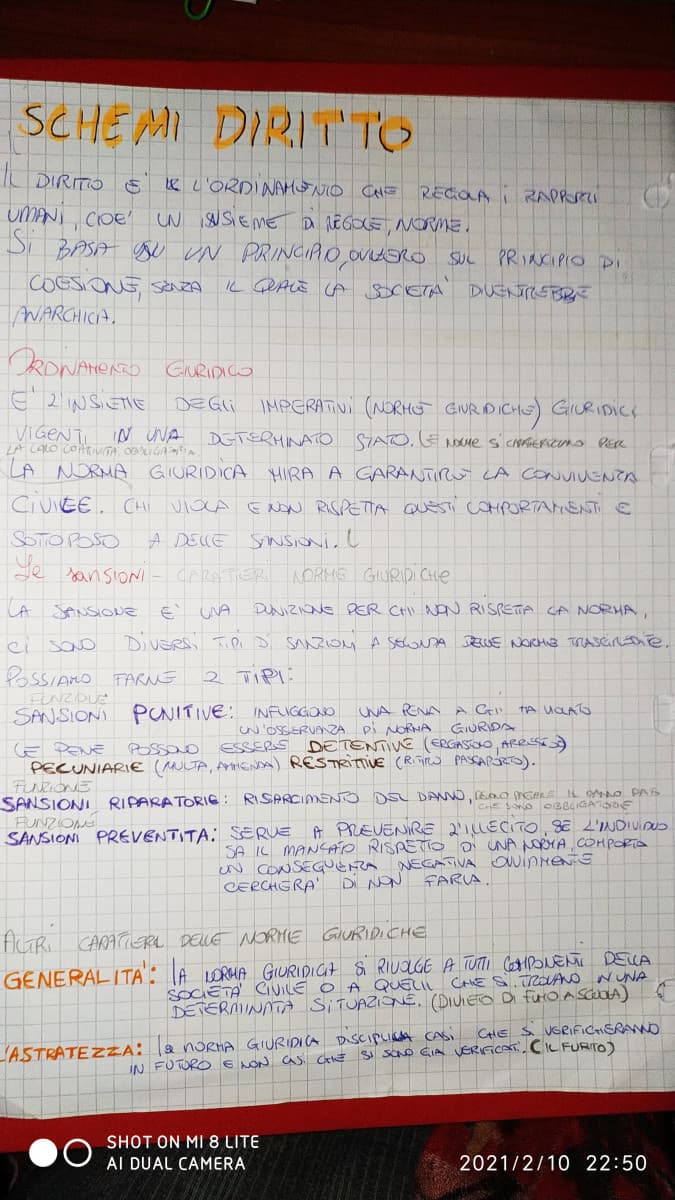 SCHEMI DIRITTO
IL DIRITTO E' L'ORDINAMENTO CHE REGOLA i RAPPORTI
UMANI, CIOE' UN INSIEME DI REGOLE, NORME.
Si BASA SU UN PRINCIPIO, OVVERO SUL PRINCIPIO DI
COESIONE, SENZA IL QUALE LA SOCIETA' DIVENTEREBBE
ANARCHICA.
ORDINAMENTO GIURIDICO
E' L'INSIEME DEGLI IMPERATIVI (NORME GIURIDICHE) GIURIDICI
VIGENTI IN UNA DETERMINATO STATO. LE NORME SI CARATTERIZZANO PER
LA LORO COATTIVITA, OBBLIGATORIA
LA NORMA GIURIDICA MIRA A GARANTIRE LA CONVIVENZA
CIVILE. CHI VIOLA E NON RISPETTA QUESTI COMPORTAMENTI E
SOTTOPOSO A DELLE SANSIONI.
Le sansioni - CARATTERI NORME GIURIDICHE
LA SANSIONE E' UNA PUNIZIONE PER CHI NON RISPETTA LA NORMA,
ci SONO DIVERSI TIPI DI SANZIONI A SECONDA DELLE NORME TRASGREDITE.
POSSIAMO FARNE 2 TIPI:
FUNZIONE
SANSIONI PUNITIVE: INFLIGGONO UNA PENA A CHI HA VIOLATO
UN'OSSERVANZA DI NORMA GIURIDA
LE PENE POSSONO ESSERE DETENTIVE (ERGASTOLO, ARRESTO)
PECUNIARIE (MULTA, AMMENDA) RESTRITTIVE (RITIRO PASSAPORTO).
FUNZIONE
SANSIONI RIPARATORIE: RISARCIMENTO DEL DANNO, PAGARE IL DANNO
CHE SONO OBBLIGATORIE
FUNZIONE
SANSIONI PREVENTITA: SERVE A PREVENIRE L'ILLECITO, SE L'INDIVIDUO
SA IL MANCATO RISPETTO DI UNA NORMA, COMPORTA
UN CONSEGUENZA NEGATIVA OVVIAMENTE
CERCHERA' DI NON FARLA.
ALTRI CARATTERI DELLE NORME GIURIDICHE
GENERALITA': LA NORMA GIURIDICA SI RIVOLGE A TUTTI COMPONENTI DELLA
SOCIETA' CIVILE O A QUELLI CHE SI TROVANO IN UNA
DETERMINATA SITUAZIONE. (DIVIETO DI FUMO A SCUOLA)
L'ASTRATEZZA: la NORMA GIURIDICA DISCIPLINA CASI CHE SI VERIFICHERANNO
IN FUTURO E NON CASI CHE SI SONO GIA VERIFICATI. (IL FURTO)
SHOT ON MI 8 LITE
AI DUAL CAMERA
2021/2/10 22:50